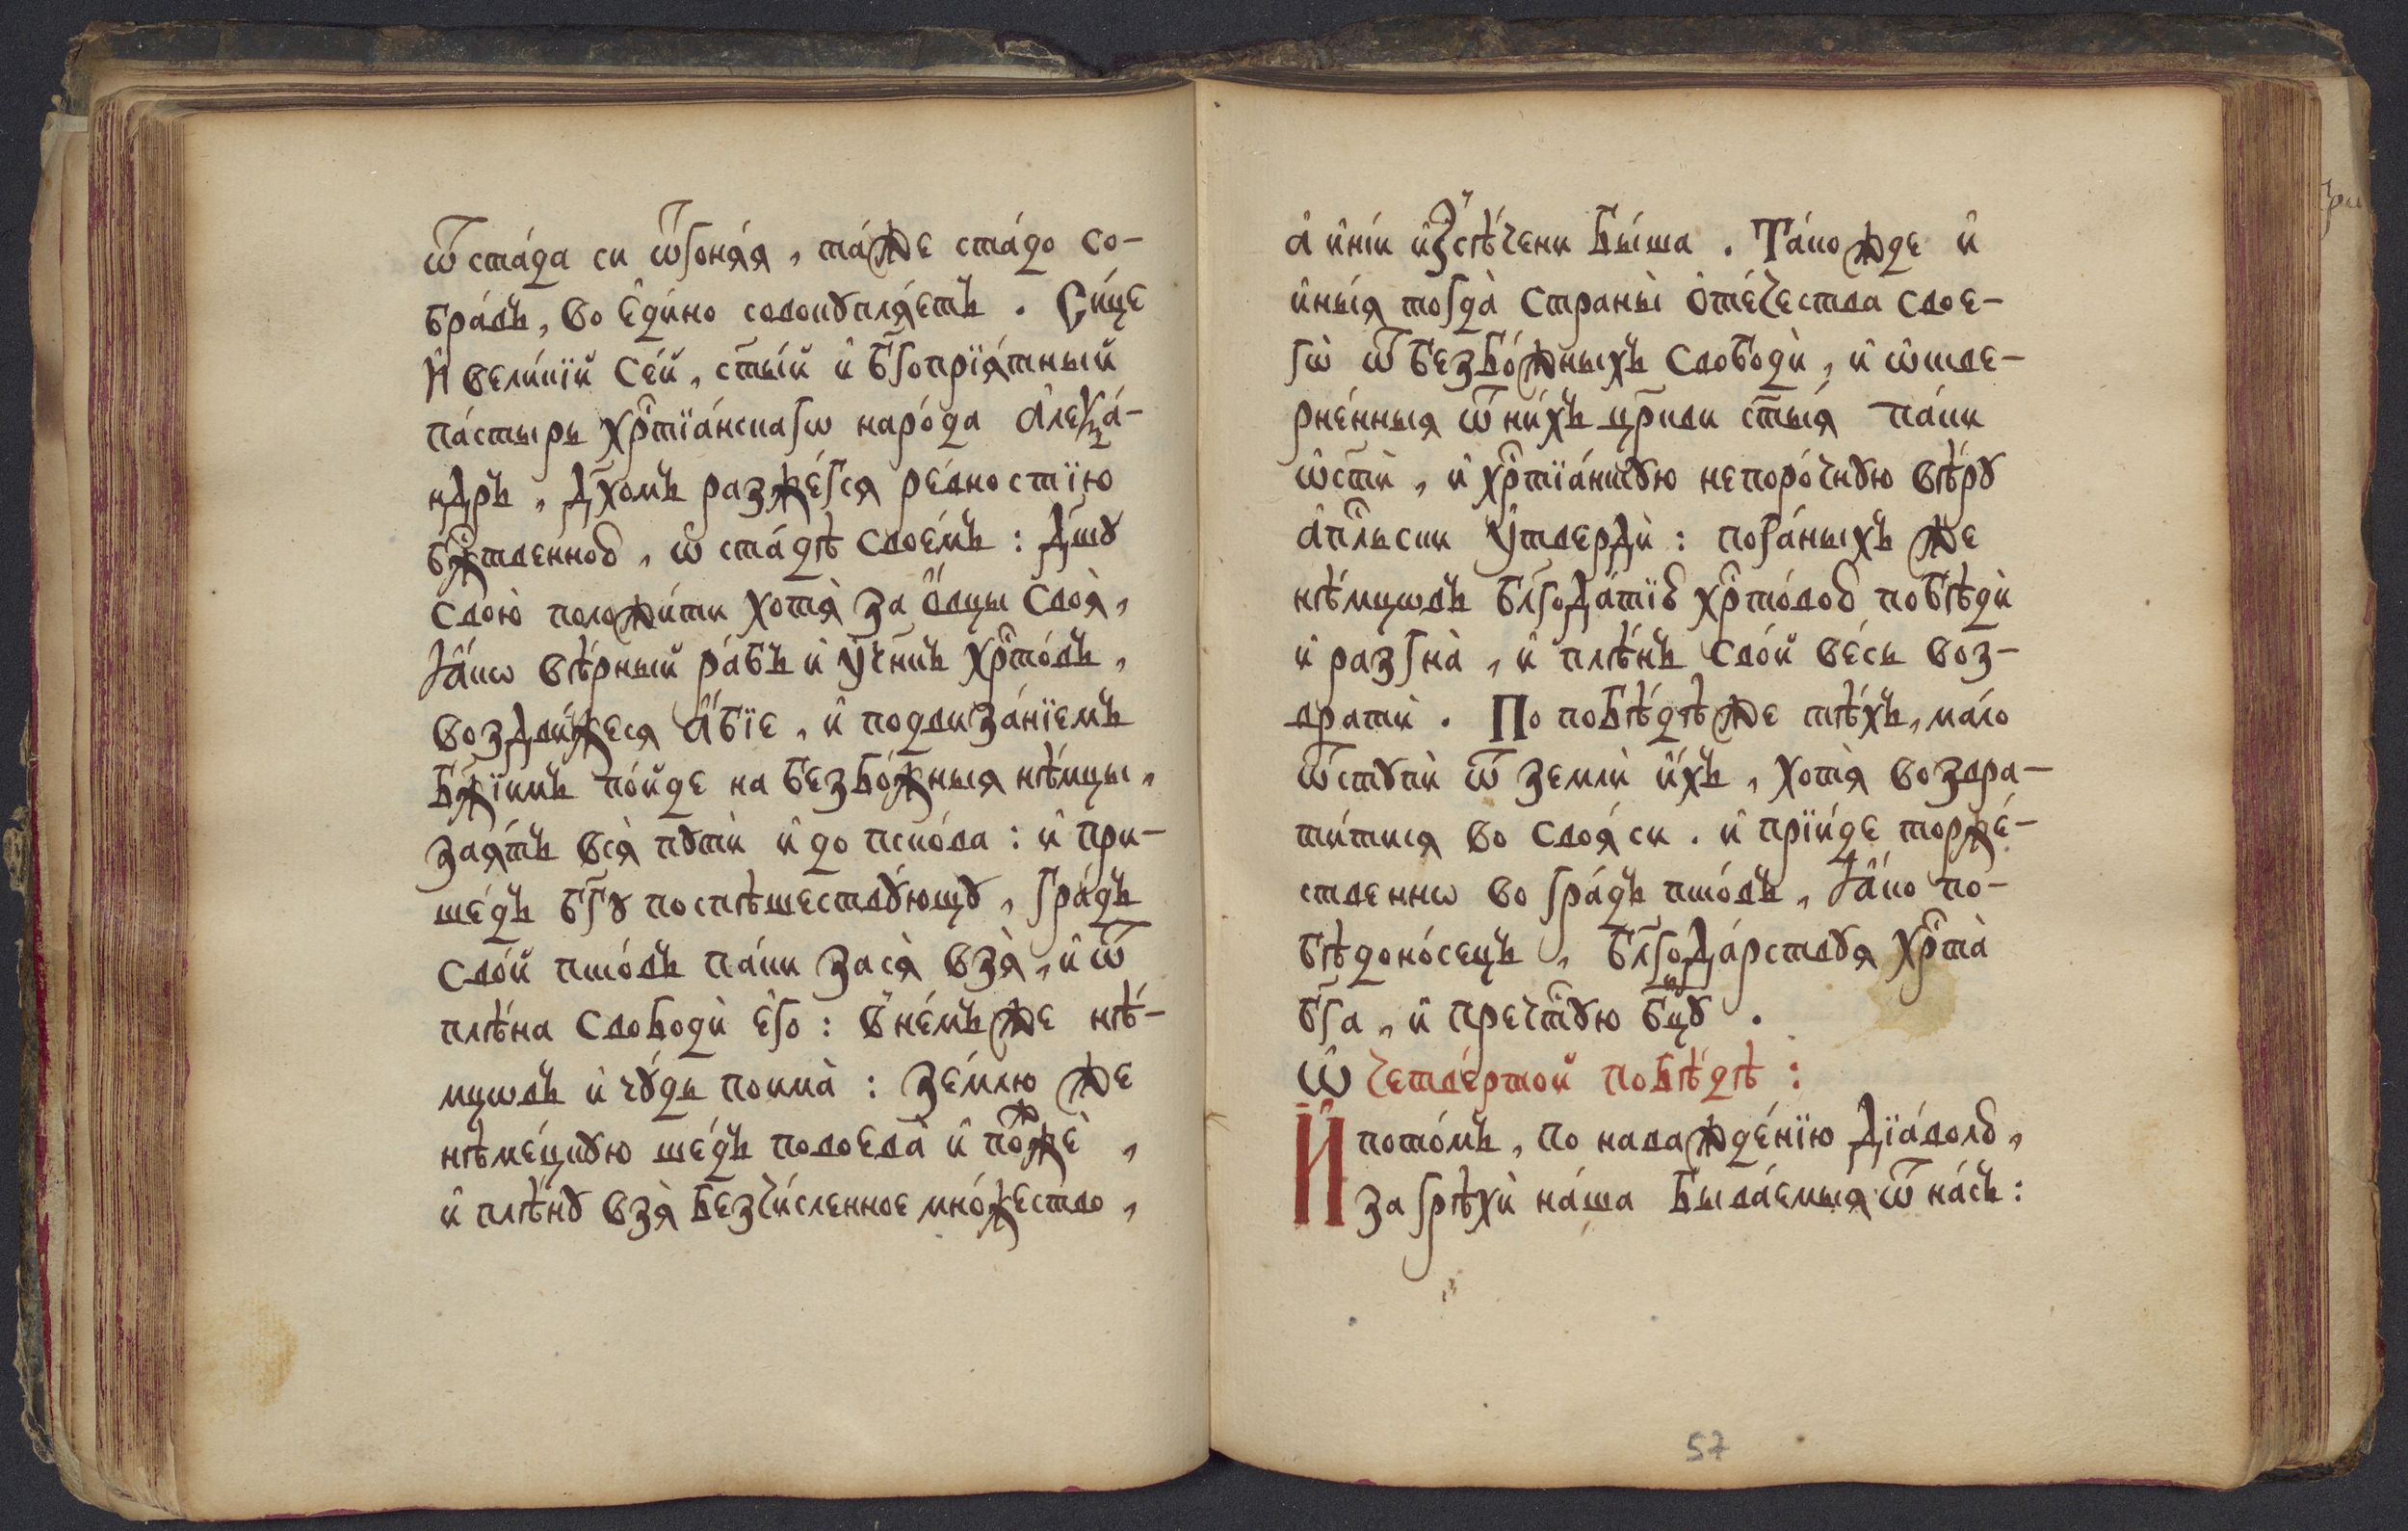 ѿ ста́да си ѿгоня́я, та́же ста́до со-
бра́въ, во є҆ди́но совокꙋпля́етъ. Си́це
И҆ вели́кїй се́й, ст҃ы́й и҆ бг҃опрїѧ́тный
па́стырь хрⷭ҇тїа́нскагѡ наро́да а҆леѯа́-
ндръ, дх҃омъ разже́гся ре́вностїю
бж҃твенною, ѡ҆ ста́дѣ своє́мъ: дш҃ꙋ
свою̀ положи́ти хотя̀ за ѻ҆́вцы своя̀,
ꙗ҆́кѡ вѣ́рный ра́бъ и҆ ᲂу҆чн҃къ хрⷭ҇то́въ,
воздви́жеся а҆́бїе, и҆ подвиза́нїемъ
бж҃їимъ по́йде на безбо́жныя нѣ́мцы,
зая́тъ вся̀ пꙋтѝ и҆ до пско́ва: и҆ при-
ше́дъ бг҃ꙋ поспѣшествꙋ́ющꙋ, гра́дъ
сво́й пско́въ па́ки зася̀ взя̀, и҆ ѿ
плѣ́на свободѝ є҆го: в не́мъ же нѣ́-
мцѡвъ и҆ чꙋ́дь поима̀: зе́млю же
нѣме́цкꙋю ше́дъ повоева̀ и҆ пожжѐ,
и҆ плѣ́нꙋ взя̀ безчи́сленное мно́жество,
а҆ и҆ні́и и҆зсѣ́чени бы́ша. Та́кожде и҆
и҆ны́я тогда̀ страны̀ ѻ҆те́чества своє-
гѡ̀ ѿ безбо́жныхъ свободѝ, и҆ ѡ҆скве-
рне́нныя ѿ ни́хъ цр҃кви ст҃ы́я па́ки
ѡ҆ст҃ѝ, и҆ хрⷭ҇тїа́нскꙋю непоро́чнꙋю вѣ́рꙋ
а҆пⷭ҇льски ᲂу҆твердѝ: пога́ныхъ же
нѣ́мцѡвъ бл҃года́тїю хрⷭ҇то́вою побѣдѝ
и҆ разгна̀, и҆ плѣ́нъ сво́й ве́сь воз-
вратѝ. По побѣ́дѣ же тѣ́хъ, ма́лѡ
ѿстꙋпѝ ѿ землѝ и҆́хъ, хотя̀ возвра-
ти́тися во своя́ си. и҆ прїи́де торже́-
ственнѡ во гра́дъ пско́въ, ꙗ҆́ко по-
бѣдоно́сецъ, бл҃годáрствꙋя хрⷭ҇та̀
бг҃а, и҆ пречⷭ҇тꙋю бцⷣꙋ.
Ѡ҆ четве́ртой побѣ́дѣ:
И҆ пото́мъ, по наважде́нїю дїа́волю,
за грѣхѝ на́ша быва́емыя ѿ на́съ:
57